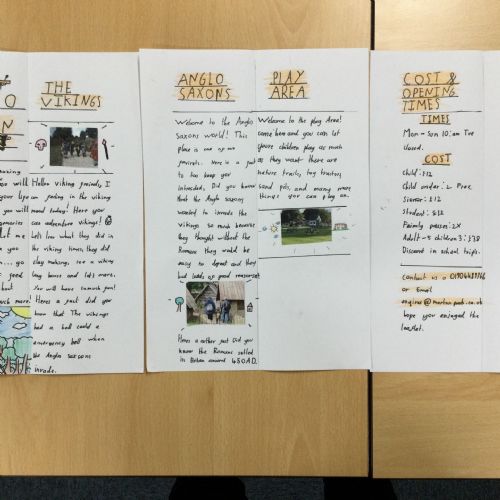 O
N
will
your lips
you will
memories
let me
food
about
much more!
THE
VIKINGS
Hello viking friends, I
am feeling in the viking
mood today! Here you
can adventure vikings!
lets see what they did in
the viking times, they did
clay making, see a viking
long house and lots more.
You will have so much fun!
Heres a fact did you
know that The vikings
had a bell could a
emergency bell when
the Anglo saxons
invade.
ANGLO
SAXONS
Welcome to the Anglo
Saxons world! This
place is one of my
favourites. Here is a fact
to too keep you
intrested, Did you know
that the Anglo saxons
wanted to invade the
vikings so much because
they thought without the
Romans they would be
easy to defeat and they
had loads of good resources!
Heres a nother fact Did you
know the Romans settled
in Britain around 450AD.
PLAY
AREA
Welcome to the play Area!
come here and you can let
youre children play as much
as they want there are
nature trails, toy tractors,
sand pits, and many more
things you can play on.
COST &
OPENING
TIMES
TIMES
Mon - Sun 10:am Tue
closed.
COST
Child: £12
Child under: 2 Free
Sienor: £12
Student: £12
Family passes: 2X
Adult - 3 children 3: £38
Discount in school trips.
Contact is a
or Email
hope you enjoyed the
leaflet.